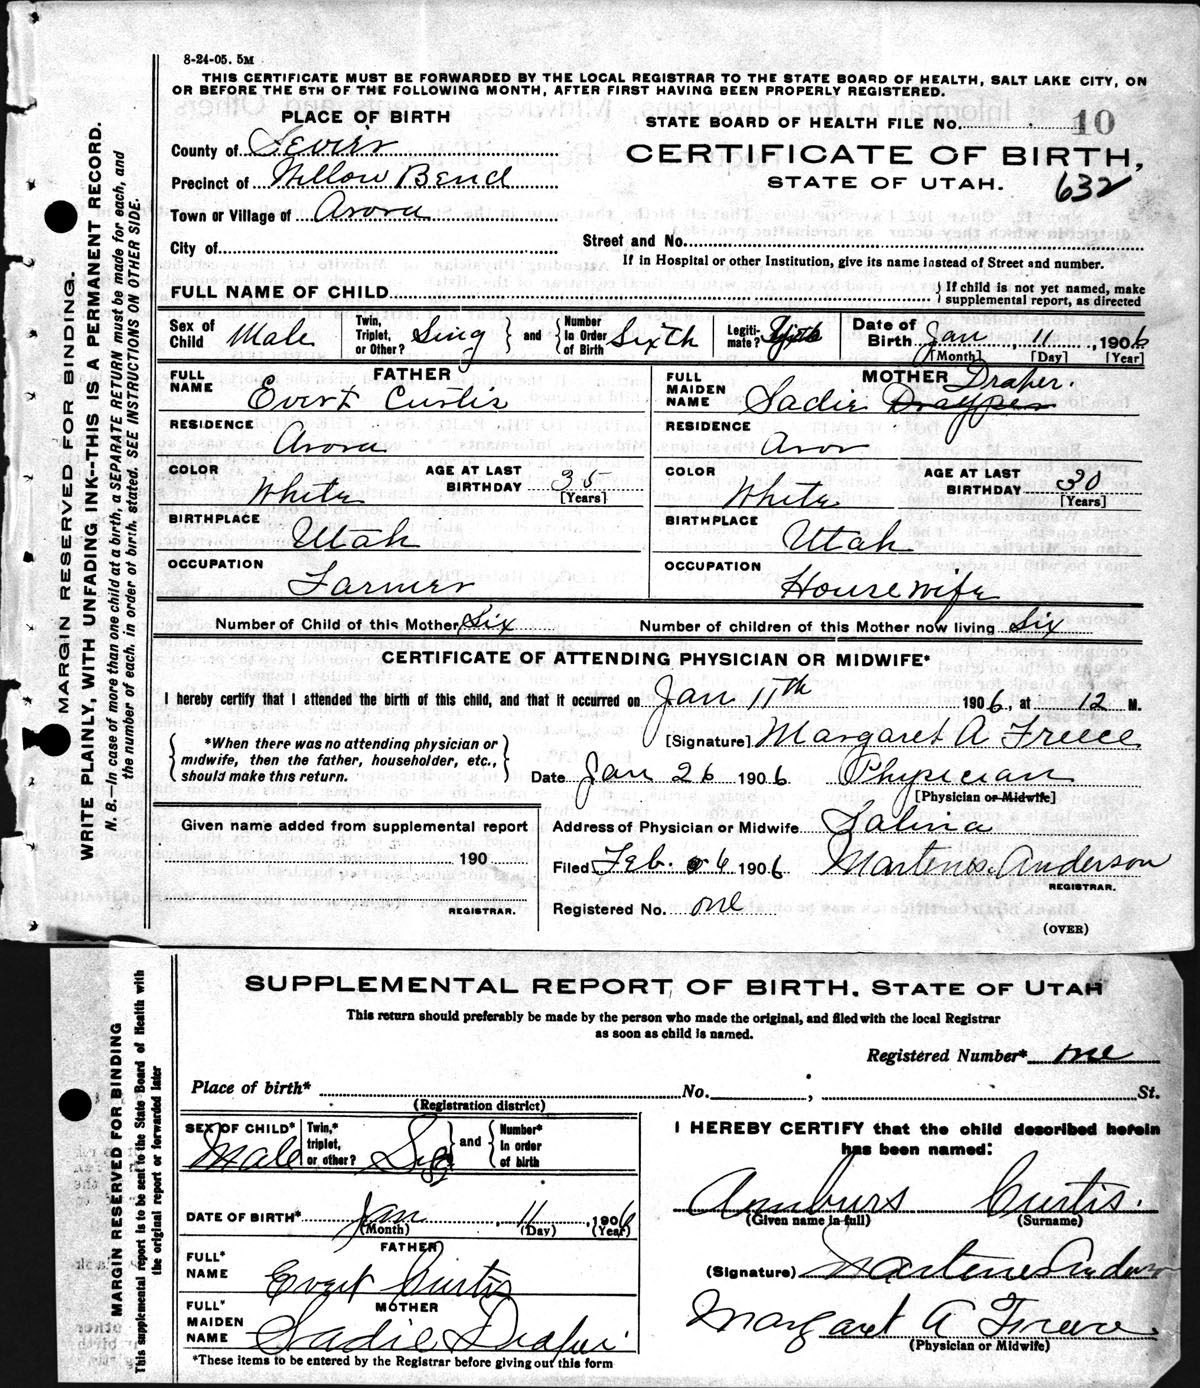 8-24-05. 5M
THIS CERTIFICATE MUST BE FORWARDED BY THE LOCAL REGISTRAR TO THE STATE BOARD OF HEALTH, SALT LAKE CITY, ON
OR BEFORE THE 5TH OF THE FOLLOWING MONTH, AFTER FIRST HAVING BEEN PROPERLY REGISTERED.
PLACE OF BIRTH
STATE BOARD OF HEALTH FILE No. 10
County of Sevier
CERTIFICATE OF BIRTH,
Precinct of Willow Bend
STATE OF UTAH.
632
Town or Village of Arora
City of
Street and No.
If in Hospital or other Institution, give its name instead of Street and number.
FULL NAME OF CHILD
If child is not yet named, make
supplemental report, as directed
Sex of Child Male
Twin, Triplet, or Other? Sing
and
Number In Order of Birth Sixth
Legiti- mate?
Date of Birth Jan 11, 1906
[Month] [Day] [Year]
FATHER
FULL NAME Evert Curtis
MOTHER
FULL MAIDEN NAME Sadie Drayper Draper.
RESIDENCE Arora
RESIDENCE Aror
COLOR White
AGE AT LAST BIRTHDAY 35
[Years]
COLOR White
AGE AT LAST BIRTHDAY 30
[Years]
BIRTHPLACE Utah
BIRTHPLACE Utah
OCCUPATION Farmer
OCCUPATION Housewife
Number of Child of this Mother Six
Number of children of this Mother now living Six
CERTIFICATE OF ATTENDING PHYSICIAN OR MIDWIFE*
I hereby certify that I attended the birth of this child, and that it occurred on Jan 11th 1906, at 12 M.
*When there was no attending physician or
midwife, then the father, householder, etc.,
should make this return.
[Signature] Margaret A Freece
Date Jan 26 1906 Physician
[Physician or Midwife]
Given name added from supplemental report
190
REGISTRAR.
Address of Physician or Midwife Salina
Filed Feb. 6 1906 Martenus Anderson
REGISTRAR.
Registered No. one
(OVER)
MARGIN RESERVED FOR BINDING.
WRITE PLAINLY, WITH UNFADING INK--THIS IS A PERMANENT RECORD.
N. B.—In case of more than one child at a birth, a SEPARATE RETURN must be made for each, and
the number of each, in order of birth, stated. SEE INSTRUCTIONS ON OTHER SIDE.
SUPPLEMENTAL REPORT OF BIRTH, STATE OF UTAH
This return should preferably be made by the person who made the original, and filed with the local Registrar
as soon as child is named.
Registered Number* one
Place of birth* No. , St.
(Registration district)
SEX OF CHILD* Male
Twin,* triplet, or other?
and
Number* In order of birth
I HEREBY CERTIFY that the child described herein
has been named:
Amburs Curtis.
(Given name in full) (Surname)
DATE OF BIRTH* Jan 11, 1906
(Month) (Day) (Year)
FATHER
FULL* NAME Evert Curtis
(Signature) Martenus Anderson
MOTHER
FULL* MAIDEN NAME Sadie Draper
Margaret A Freece
(Physician or Midwife)
*These items to be entered by the Registrar before giving out this form
MARGIN RESERVED FOR BINDING
This supplemental report is to be sent to the State Board of Health with
the original report or forwarded later